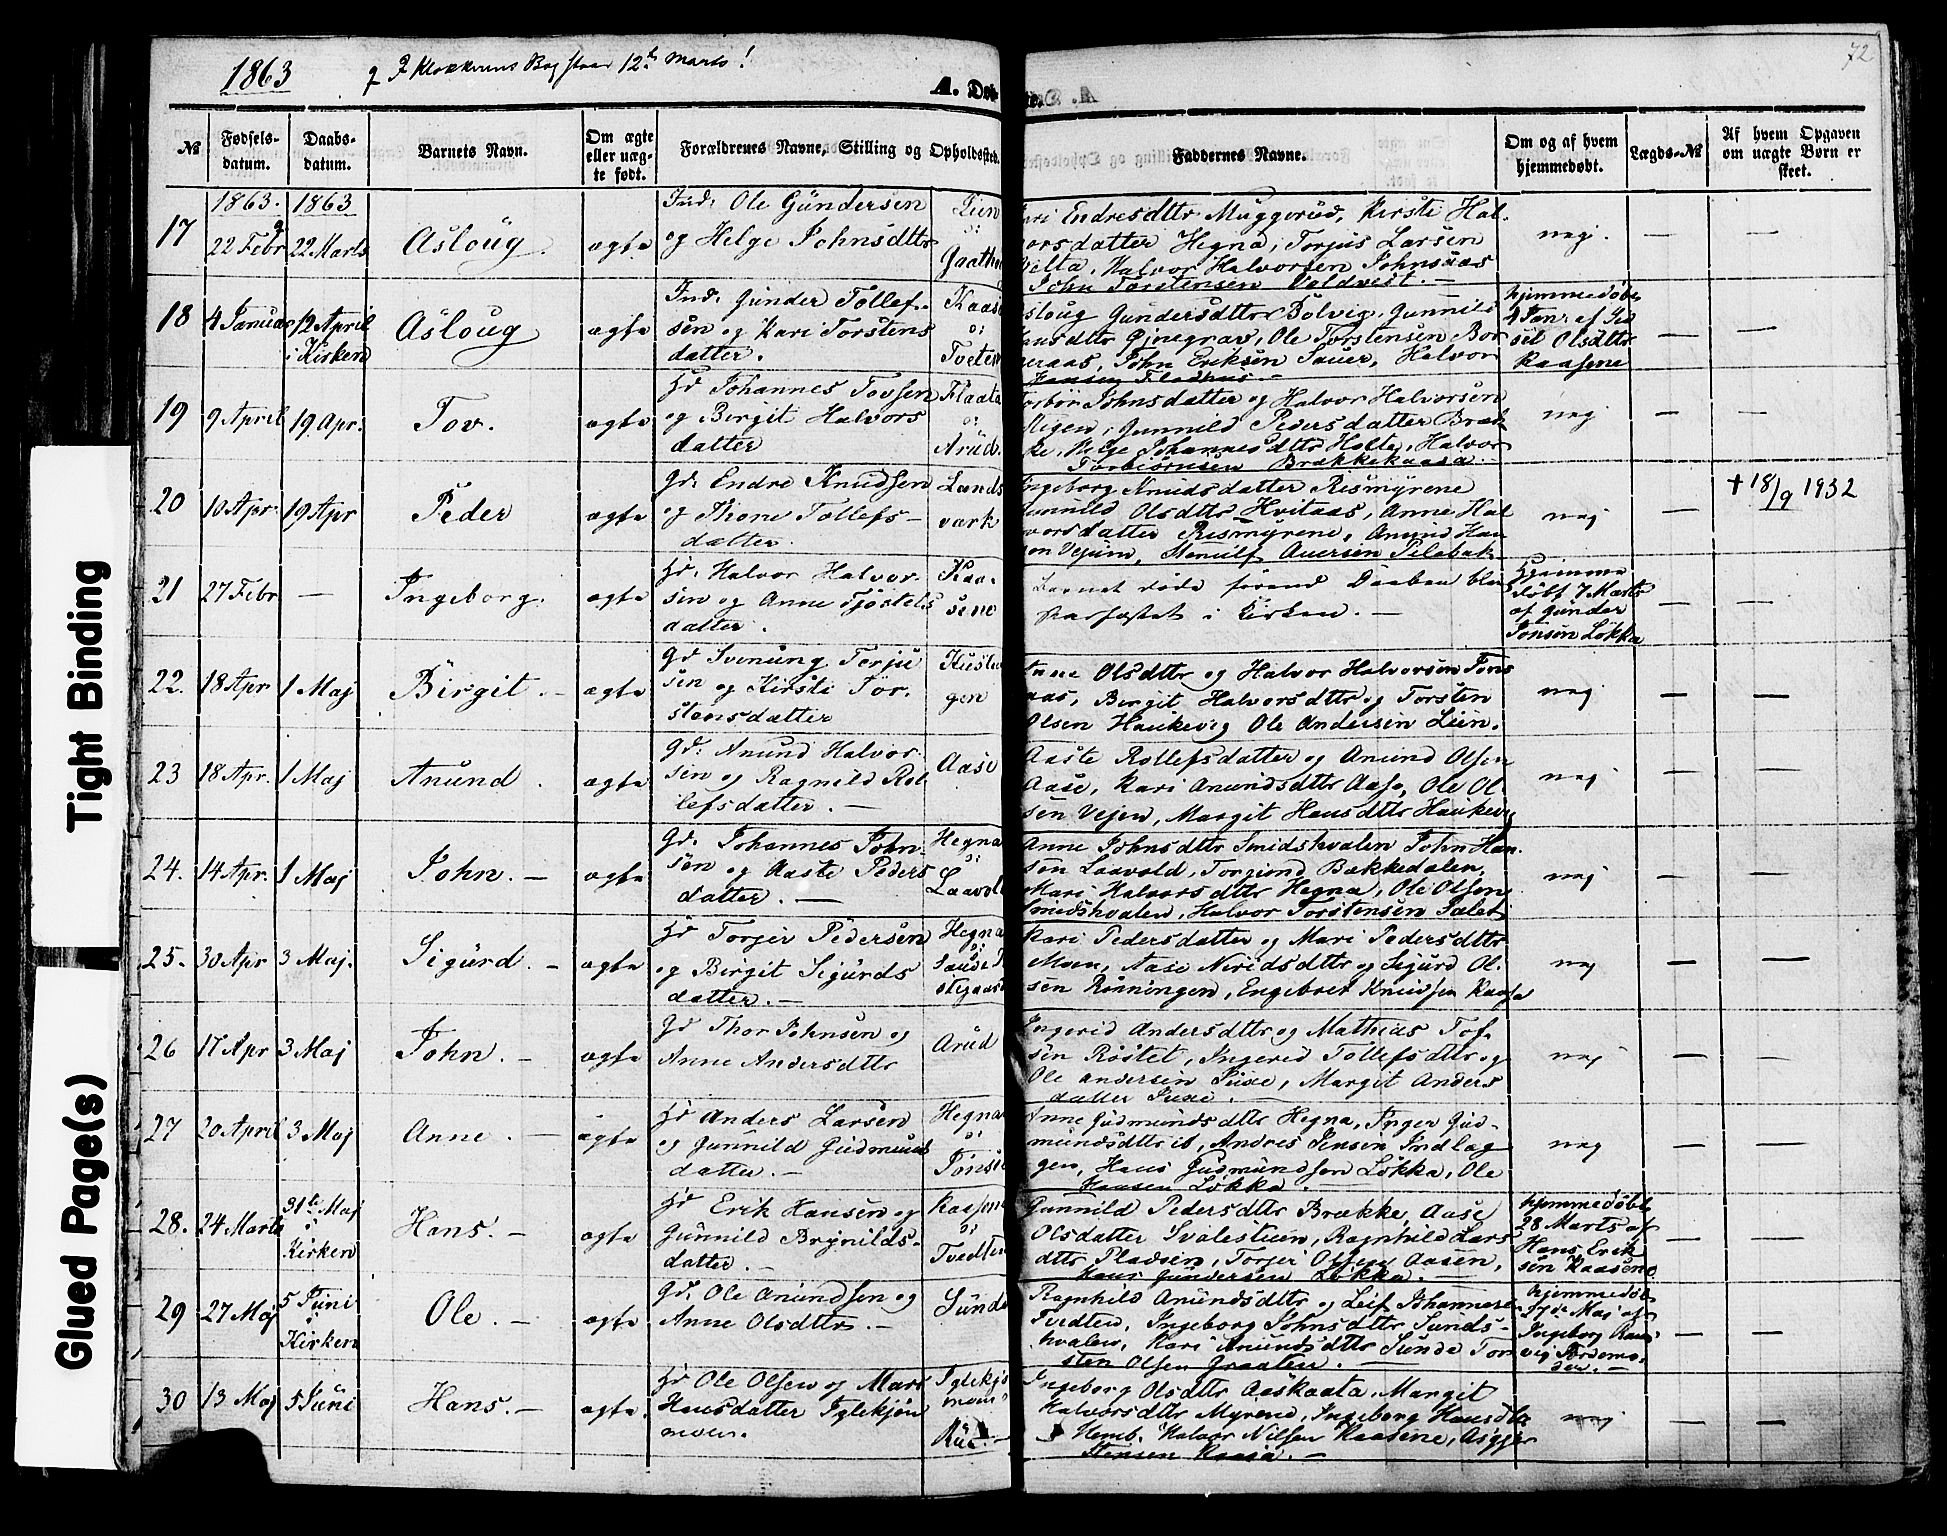 1863
I Klokkerens Bog staar 12te Marts!
A. Dø
te.
72
№
Fødsels-
datum.
Daabs-
datum.
Barnets Navn.
Om ægte
eller uæg-
te født.
Forældrenes Navne, Stilling og Opholdssted.
Faddernes Navne.
Om og af hvem
hjemmedøbt.
Lægds-№
Af hvem Opgaven
om uægte Børn er
skeet.
17
1863.
22 Febr
1863
22 Marts
Asloug
ægte
Ind: Ole Gundersen
og Helge Johnsdttr
Lien
Endresdttr Muggerud, Kirste Hal-
vorsdatter Hegna, Torjus Larsen
Halvor Halvorsen Johnsaas
John Torstensen Valdvest. —
nej.
—
—
18
4 Januar
12 April
i Kirken
Asloug
ægte
Ind: Gunder Tollef-
sen og Kari Torstens
datter.
Kaase
Tveten
Gundersdttr Bolvig, Gunnild
Hansdttr Øjnegrav, Ole Torstensen Bor
John Eriksen Sauer, Halvor
Hansen Fladhus. —
hjemmedøbt
4 Jan. af Sid
sel Olsdttr
Kaasene
—
—
19
9 April
19 Apr.
Tov.
ægte
Hd Johannes Tovsen
og Birgit Halvors
datter
Flaata
Arud.
Johnsdatter og Halvor Halvorsen
Stigen, Gunnild Pedersdatter Bræk-
ke, Helge Johannesdttr Holte, Halvor
Torbiørnsen Brækkekaasa.
nej
—
—
20
10 Apr.
19 Apr
Peder
ægte
Gd: Endre Knudsen
og Thone Tollefs-
datter.
Lands
værk
Ingeborg Knudsdatter Resmyrene
Gunnild Olsdttr Hvitaas, Anne Hal
vorsdatter Resmyrene, Anund Han
sen Vejum, Stenulf Auersen Pilebak-
nej
—
+ 18/9 1932
21
27 Febr
—
Ingeborg.
ægte
Hd: Halvor Halvor-
sen og Anne Tjostels
datter.
Kaa-
sene
Barnet døde førend Daaben blev
i Kirken. —
Hjemme
døbt 7 Marts
af Gunder
Jonsen Løkka
—
—
22.
18 Apr
1 Maj
Birgit. —
ægte
Gd Svenung Torju
sen og Kirsti Tor-
stensdatter
Anne Olsdttr og Halvor Halvorsen Jons
aas, Birgit Halvorsdttr og Torsten
Olsen Haukevig Ole Andersen Lien.
nej
—
—
23
18 Apr.
1 Maj
Anund.
ægte
Gd: Anund Halvor-
sen og Ragnild Rol
lefsdatter. —
Aase
Aaste Rollefsdatter og Anund Olsen
Aase, Kari Anundsdttr Aase, Ole Ol-
sen Vejen, Margit Hansdttr Haukevig
nej
—
—
24.
14 Apr.
1 Maj
John. —
ægte
Gd: Johannes John-
sen og Aaste Peders
datter. —
Hegna
Laavold
Anne Johnsdttr Smidshvalen John Han-
sen Laavold, Torgiond Bakkedalen,
Mari Halvorsdttr Hegna, Ole Olsen
Smidshvalen, Halvor Torstensen
nej
—
—
25.
30 Apr
3 Maj.
Sigurd. —
ægte
Hd Torjer Pedersen
og Birgit Sigurds
datter. —
Hegna
Kari Pedersdatter og Mari Pedersdttr
Moen, Aase Neridsdttr og Sigurd Ol-
sen Rønningen, Engebret Knudsen Kaasa
nej
—
—
26
17 Apr
3 Maj
John. —
ægte
Gd Thor Johnsen og
Anne Andersdttr
Arud
Ingerid Andersdttr og Mathias Tof-
sen Røstet, Ingerid Tollefsdttr og
Ole Andersen Juve, Margit Anders
datter Juve. —
nej
—
—
27
20 April
3 Maj
Anne. —
ægte
Hd Anders Larsen
og Gunnild Gudmunds
datter. —
Hegna
Anne Gudmundsdttr Hegna, Inger Gud-
mundsdttr ib, Andres Jensen Indlag
gen, Hans Gudmundsen Løkka, Ole
Hansen Løkka. —
nej
—
—
28.
24 Marts
31te Maj
i
Kirken
Hans. —
ægte
Hd Erik Hansen og
Gunnild Brynilds-
datter. —
Kaasene
Tvedten
Gunnild Pedersdttr Brække, Aase
Olsdatter Svalestuen, Ragnhild Lars
dttr Pladsen, Torjer Olsen Aasen,
Hans Gundersen Løkka. —
hjemmedøbt
28 Marts af
Hans Erik
sen Kaasene
—
—
29
27 Maj
5 Juni
i
Kirken
Ole. —
ægte
Gd: Ole Anundsen og
Anne Olsdttr. —
Sunde
Ragnhild Anundsdttr og Leif Johannesen
Tvedten, Ingeborg Johnsdttr Sunds-
hvalen, Kari Anundsdttr Sunde Tor
sten Olsen Graaten. —
hjemmedøbt
27de Maj af
Ingeborg
Jordemo-
der. —
—
—
30
13 Maj
5 Juni
Hans. —
ægte.
Hd Ole Olsen og Mari
Hansdatter Iglekjøn
moen.
Iglekjøn
moen
Ingeborg Olsdttr Aaskaata, Margit
Halvorsdttr Myrend, Ingeborg Hansdttr
Hemb. Halvor Nilsen Kaasene,
Stensen Kaasa. —
nej
—
—
Tight Binding
Glued Page(s)